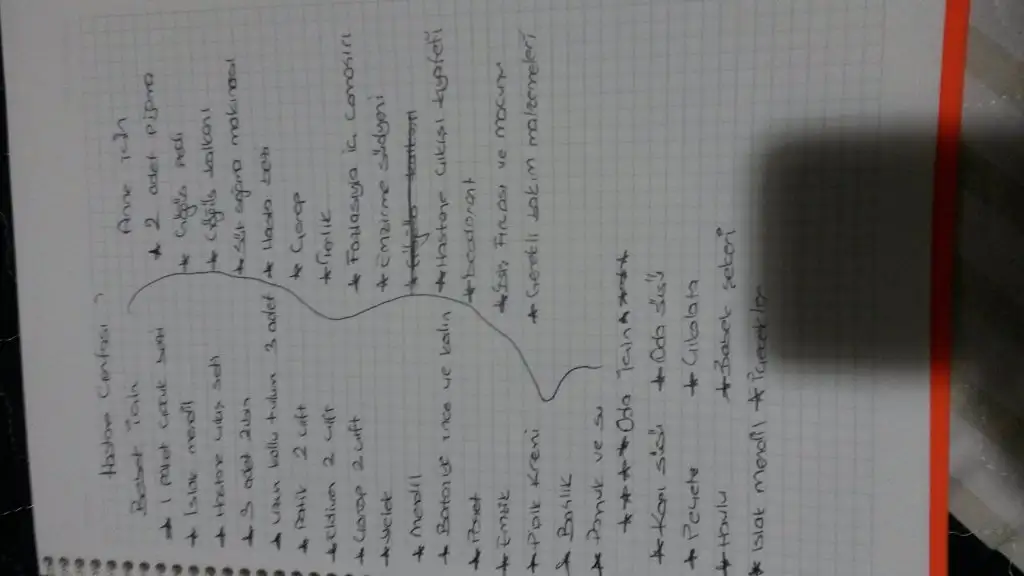 Hastane Çantası
Bebek İçin
* 1 paket çocuk bezi
* Islak mendil
* Hastane çıkış seti
* 3 adet zıbın
* uzun kollu tulum 3 adet
* Patik 2 çift
* Eldiven 2 çift
* Çorap 2 çift
* Yelek
* Mendil
* Battaniye ince ve kalın
* Poset
* Emzik
* Pişik Kremi
* Başlık
* Pamuk ve su
Anne için
* 2 adet pijama
* Göğüs pedi
* Göğüs kalkanı
* Süt sağma makinası
* Havlu seti
* Çorap
* Terlik
* Fazlasıyla iç çamaşırı
* Emzirme sütyeni
* Hastane çıkışı kıyafeti
* Deodorant
* Diş Fırçası ve macunu
* Gerekli bakım malzemeleri
**** Oda İçin ****
* Kapı süsü * Oda süsü
* Peçete * Çikolata
* Havlu * Bebek şekeri
* Islak mendil * İçecekler